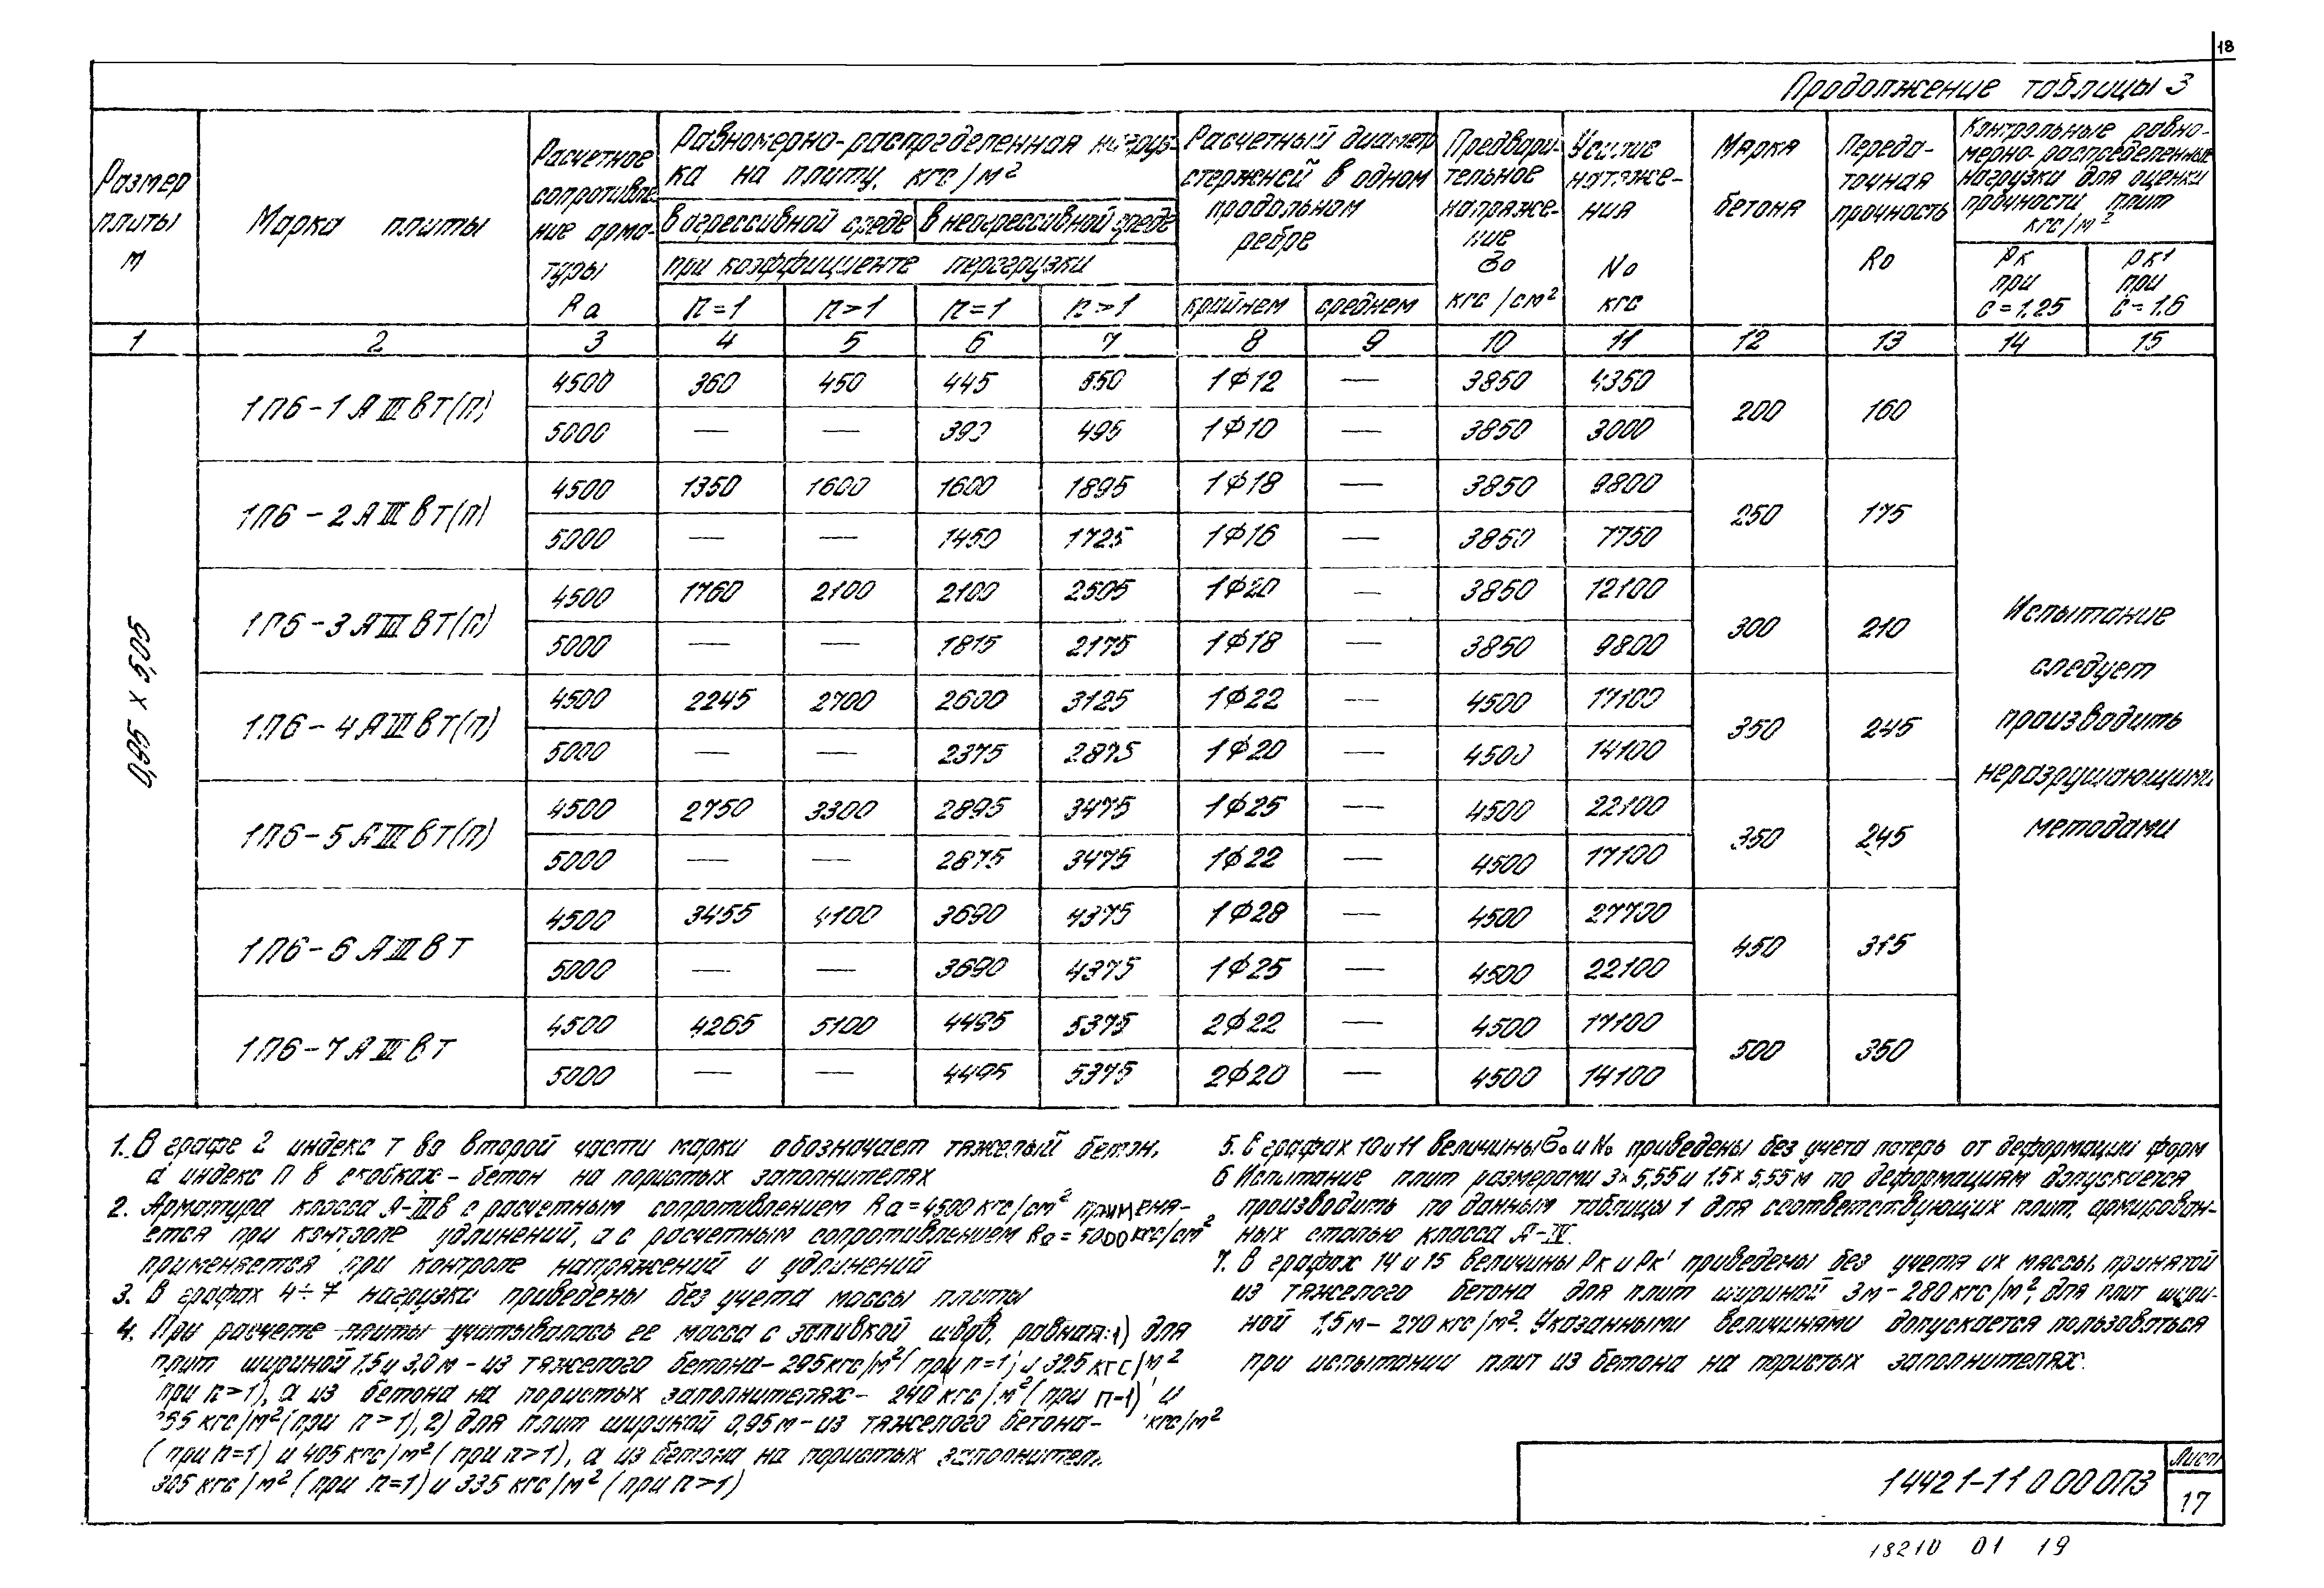 18
Продолжение таблицы 3
Размер плиты м | Марка плиты | Расчетное сопротивле- ние арма- туры Ra | Равномерно-распределенная нагруз- ка на плиту, кгс/м² | Расчетный диаметр стержней в одном продольном ребре | Предвари- тельное напряже- ние σo кгс/см² | Усилие натяже- ния No кгс | Марка бетона | Переда- точная прочность Ro | Контрольные равно- мерно-распределенные нагрузки для оценки прочности плит кгс/м²
в агрессивной среде | в неагрессивной среде
при коэффициенте перегрузки
n=1 | n>1 | n=1 | n>1 | крайнем | среднем | Рк при С=1,25 | Рк¹ при С=1,6
1 | 2 | 3 | 4 | 5 | 6 | 7 | 8 | 9 | 10 | 11 | 12 | 13 | 14 | 15
0,95 х 5,05
1П6-1АIIIвТ(П) | 4500 | 360 | 450 | 445 | 550 | 1Ф12 | — | 3850 | 4350 | 200 | 160
5000 | — | — | 390 | 495 | 1Ф10 | — | 3850 | 3000
1П6-2АIIIвТ(П) | 4500 | 1350 | 1600 | 1600 | 1895 | 1Ф18 | — | 3850 | 9800 | 250 | 175
5000 | — | — | 1450 | 1725 | 1Ф16 | — | 3850 | 7750
1П6-3АIIIвТ(П) | 4500 | 1760 | 2100 | 2100 | 2505 | 1Ф20 | — | 3850 | 12100 | 300 | 210
5000 | — | — | 1815 | 2175 | 1Ф18 | — | 3850 | 9800
1П6-4АIIIвТ(П) | 4500 | 2245 | 2700 | 2600 | 3125 | 1Ф22 | — | 4500 | 17100 | 350 | 245
5000 | — | — | 2375 | 2875 | 1Ф20 | — | 4500 | 14100
1П6-5АIIIвТ(П) | 4500 | 2750 | 3300 | 2895 | 3475 | 1Ф25 | — | 4500 | 22100 | 350 | 245
5000 | — | — | 2875 | 3475 | 1Ф22 | — | 4500 | 17100
1П6-6АIIIвТ | 4500 | 3455 | 4100 | 3690 | 4375 | 1Ф28 | — | 4500 | 27700 | 450 | 315
5000 | — | — | 3690 | 4375 | 1Ф25 | — | 4500 | 22100
1П6-7АIIIвТ | 4500 | 4265 | 5100 | 4495 | 5375 | 2Ф22 | — | 4500 | 17100 | 500 | 350
5000 | — | — | 4495 | 5375 | 2Ф20 | — | 4500 | 14100
Испытание
следует
производить
неразрушающими
методами
1. В графе 2 индекс Т во второй части марки обозначает тяжелый бетон,
а индекс П в скобках - бетон на пористых заполнителях
2. Арматура класса А-IIIв с расчетным сопротивлением Ra=4500 кгс/см² применя-
ется при контроле удлинений, а с расчетным сопротивлением Ra=5000 кгс/см²
применяется при контроле напряжений и удлинений
3. В графах 4÷7 нагрузки приведены без учета массы плиты
4. При расчете плиты учитывалась ее масса с заливкой швов, равная: 1) для
плит шириной 1,5 и 3,0 м - из тяжелого бетона - 295 кгс/м² (при n=1) и 325 кгс/м²
при n>1), а из бетона на пористых заполнителях - 240 кгс/м² (при n=1) и
кгс/м² (при n>1), 2) для плит шириной 0,95 м - из тяжелого бетона - кгс/м²
(при n=1) и 405 кгс/м² (при n>1), а из бетона на пористых заполнител.
305 кгс/м² (при n=1) и 335 кгс/м² (при n>1)
5. В графах 10 и 11 величины σo и No приведены без учета потерь от деформации форм
6 Испытание плит размерами 3×5,55 и 1.5×5,55 м по деформациям допускается
производить по данным таблицы 1 для соответствующих плит, армирован-
ных сталью класса А-IV.
7. В графах 14 и 15 величины Рк и Рк' приведены без учета их массы, принятой
из тяжелого бетона для плит шириной 3м - 280 кгс/м², для плит шири-
ной 1,5м - 270 кгс/м². Указанными величинами допускается пользоваться
при испытании плит из бетона на пористых заполнителях.
14421-11 0000ПЗ
Лист
17
18210 01 19